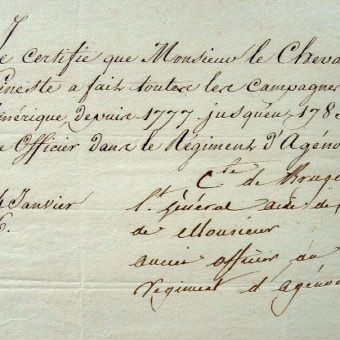 J
e certifie que Monsieur le Cheva
Gineste a fait toutes les campagnes
mérique depuis 1777 jusqu'en 178
e Officier dans le Régiment d'Agéno
Cte de Bruge
lt. général aide de
de Monsieur
ancien officier au
régiment d'agéno
4 Janvier
6.